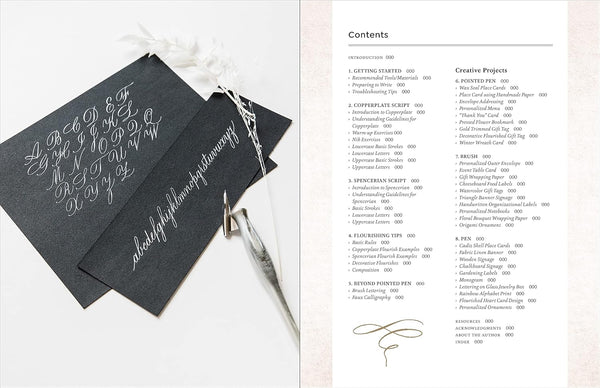 abcdefghijklmnopqrstuvwxyz
Contents
INTRODUCTION 000
1. GETTING STARTED 000
Recommended Tools/Materials 000
Preparing to Write 000
Troubleshooting Tips 000
2. COPPERPLATE SCRIPT 000
Introduction to Copperplate 000
Understanding Guidelines for
Copperplate 000
Warm-up Exercises 000
Nib Exercises 000
Lowercase Basic Strokes 000
Lowercase Letters 000
Uppercase Basic Strokes 000
Uppercase Letters 000
3. SPENCERIAN SCRIPT 000
Introduction to Spencerian 000
Understanding Guidelines for
Spencerian 000
Basic Strokes 000
Lowercase Letters 000
Uppercase Letters 000
4. FLOURISHING TIPS 000
Basic Rules 000
Copperplate Flourish Examples 000
Spencerian Flourish Examples 000
Decorative Flourishes 000
Composition 000
5. BEYOND POINTED PEN 000
Brush Lettering 000
Faux Calligraphy 000
Creative Projects
6. POINTED PEN 000
Wax Seal Place Cards 000
Place Card using Handmade Paper 000
Envelope Addressing 000
Personalized Menu 000
"Thank You" Card 000
Pressed Flower Bookmark 000
Gold Trimmed Gift Tag 000
Decorative Flourished Gift Tag 000
Winter Wreath Card 000
7. BRUSH 000
Personalized Quote Envelope 000
Event Table Card 000
Gift Wrapping Paper 000
Cheeseboard Food Labels 000
Watercolor Gift Tags 000
Triangle Banner Signage 000
Handwritten Organizational Labels 000
Personalized Notebooks 000
Floral Bouquet Wrapping Paper 000
Origami Ornament 000
8. PEN 000
Cadiz Shell Place Cards 000
Fabric Linen Banner 000
Wooden Signage 000
Chalkboard Signage 000
Gardening Labels 000
Monogram 000
Lettering on Glass Jewelry Box 000
Rainbow Alphabet Print 000
Flourished Heart Card Design 000
Personalized Ornaments 000
RESOURCES 000
ACKNOWLEDGMENTS 000
ABOUT THE AUTHOR 000
INDEX 000